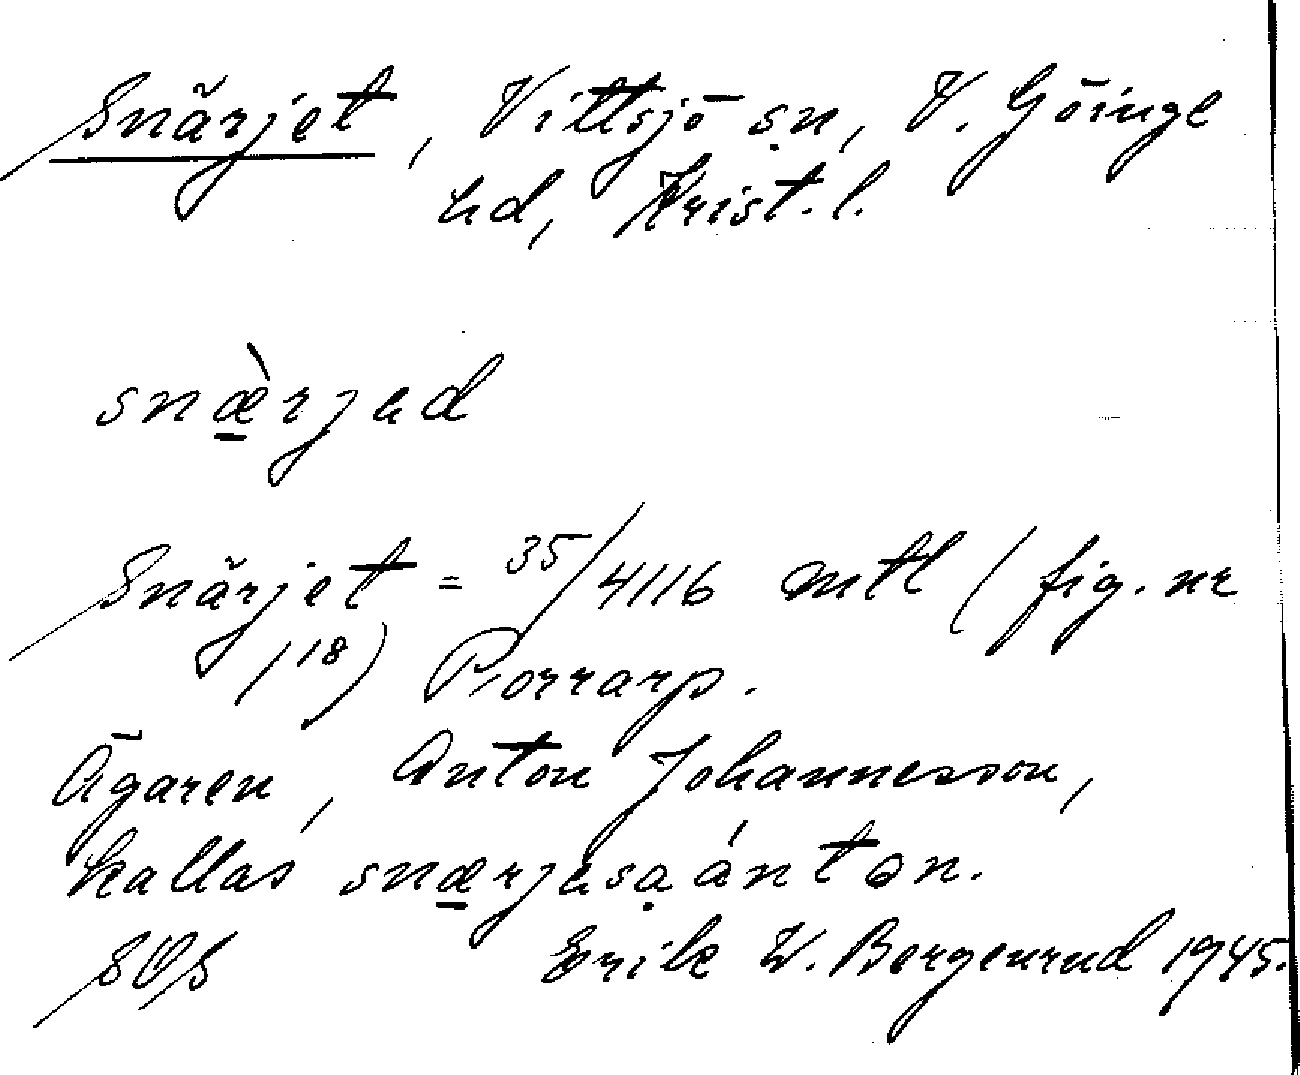 Snärjet, Vittsjö sn, V. Göinge
hd, Krist. l.
snæ̱̀rjəd
Snärjet = 35/4116 mtl (fig. nr
118) Porrarp.
Ägaren, Anton Johannesson,
kallas snæ̱rjəsạ ántən.
SOS Erik W. Bergenrud 1945.